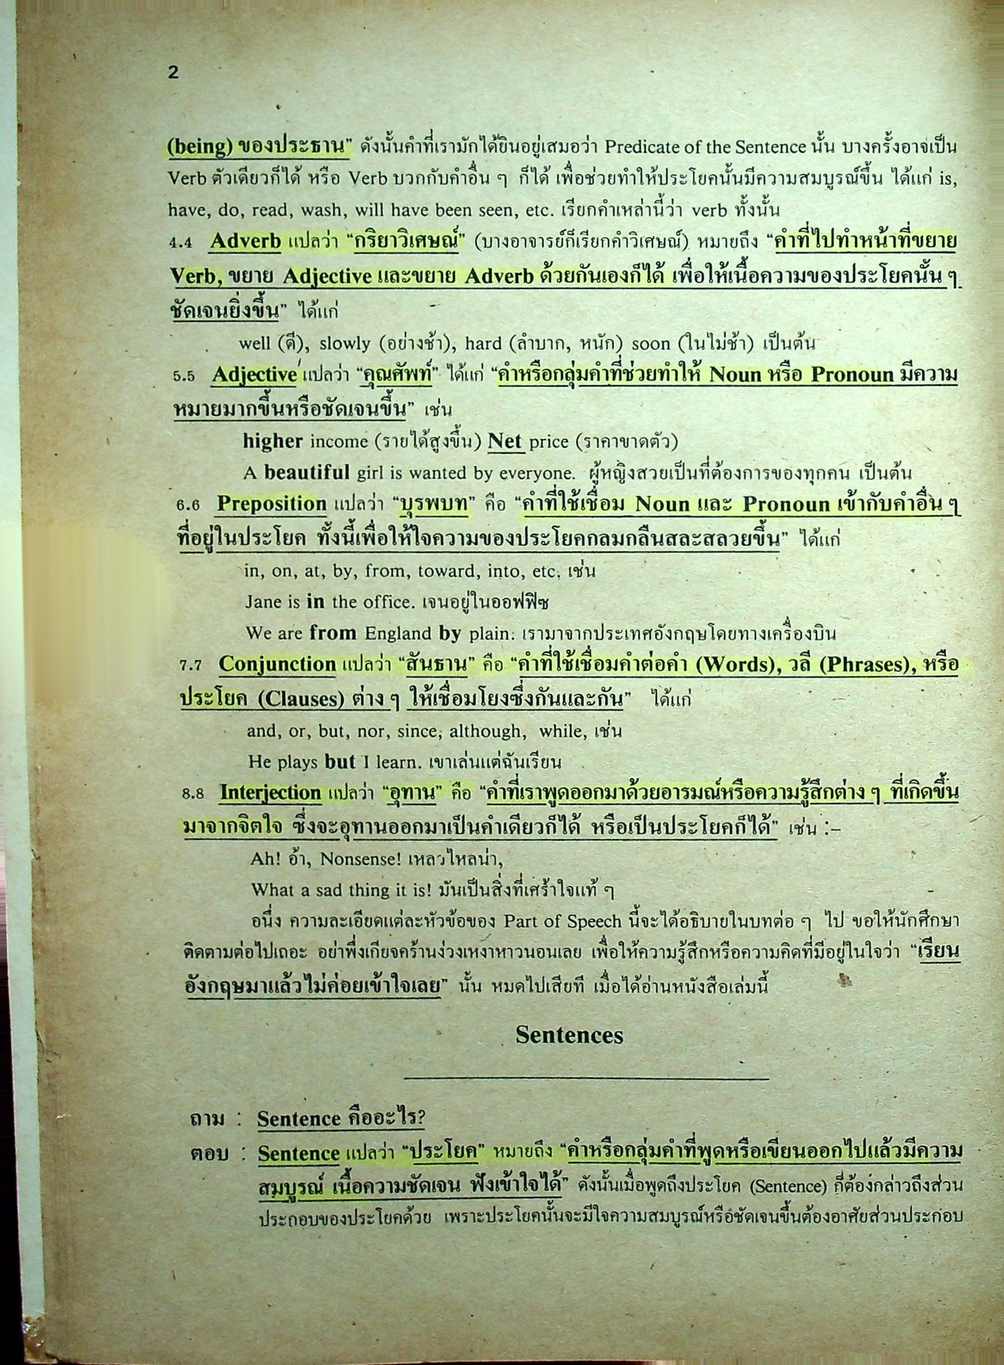 2
(being) ของประธาน” ดังนั้นคำที่เรามักได้ยินอยู่เสมอว่า Predicate of the Sentence นั้น บางครั้งอาจเป็น
Verb ตัวเดียวก็ได้ หรือ Verb บวกกับคำอื่น ๆ ก็ได้ เพื่อช่วยทำให้ประโยคนั้นมีความสมบูรณ์ขึ้น ได้แก่ is,
have, do, read, wash, will have been seen, etc. เรียกคำเหล่านี้ว่า verb ทั้งนั้น
4.4 Adverb แปลว่า “กริยาวิเศษณ์” (บางอาจารย์ก็เรียกคำวิเศษณ์) หมายถึง “คำที่ไปทำหน้าที่ขยาย
Verb, ขยาย Adjective และขยาย Adverb ด้วยกันเองก็ได้ เพื่อให้เนื้อความของประโยคนั้น ๆ
ชัดเจนยิ่งขึ้น” ได้แก่
well (ดี), slowly (อย่างช้า), hard (ลำบาก, หนัก) soon (ในไม่ช้า) เป็นต้น
5.5 Adjective แปลว่า “คุณศัพท์” ได้แก่ “คำหรือกลุ่มคำที่ช่วยทำให้ Noun หรือ Pronoun มีความ
หมายมากขึ้นหรือชัดเจนขึ้น” เช่น
higher income (รายได้สูงขึ้น) Net price (ราคาขาดตัว)
A beautiful girl is wanted by everyone. ผู้หญิงสวยเป็นที่ต้องการของทุกคน เป็นต้น
6.6 Preposition แปลว่า “บุรพบท” คือ “คำที่ใช้เชื่อม Noun และ Pronoun เข้ากับคำอื่น ๆ
ที่อยู่ในประโยค ทั้งนี้เพื่อให้ใจความของประโยคกลมกลืนสละสลวยขึ้น” ได้แก่
in, on, at, by, from, toward, into, etc. เช่น
Jane is in the office. เจนอยู่ในออฟฟิซ
We are from England by plain. เรามาจากประเทศอังกฤษโดยทางเครื่องบิน
7.7 Conjunction แปลว่า “สันธาน” คือ “คำที่ใช้เชื่อมคำต่อคำ (Words), วลี (Phrases), หรือ
ประโยค (Clauses) ต่าง ๆ ให้เชื่อมโยงซึ่งกันและกัน” ได้แก่
and, or, but, nor, since, although, while, เช่น
He plays but I learn. เขาเล่นแต่ฉันเรียน
8.8 Interjection แปลว่า “อุทาน” คือ “คำที่เราพูดออกมาด้วยอารมณ์หรือความรู้สึกต่าง ๆ ที่เกิดขึ้น
มาจากจิตใจ ซึ่งจะอุทานออกมาเป็นคำเดียวก็ได้ หรือเป็นประโยคก็ได้” เช่น :–
Ah! อ้า, Nonsense! เหลวไหลน่า,
What a sad thing it is! มันเป็นสิ่งที่เศร้าใจแท้ ๆ
อนึ่ง ความละเอียดแต่ละหัวข้อของ Part of Speech นี้จะได้อธิบายในบทต่อ ๆ ไป ขอให้นักศึกษา
ติดตามต่อไปเถอะ อย่าพึ่งเกียจคร้านง่วงเหงาหาวนอนเลย เพื่อให้ความรู้สึกหรือความคิดที่มีอยู่ในใจว่า “เรียน
อังกฤษมาแล้วไม่ค่อยเข้าใจเลย” นั้น หมดไปเสียที เมื่อได้อ่านหนังสือเล่มนี้
Sentences
ถาม : Sentence คืออะไร?
ตอบ : Sentence แปลว่า “ประโยค” หมายถึง “คำหรือกลุ่มคำที่พูดหรือเขียนออกไปแล้วมีความ
สมบูรณ์ เนื้อความชัดเจน ฟังเข้าใจได้” ดังนั้นเมื่อพูดถึงประโยค (Sentence) ก็ต้องกล่าวถึงส่วน
ประกอบของประโยคด้วย เพราะประโยคนั้นจะมีใจความสมบูรณ์หรือชัดเจนขึ้นต้องอาศัยส่วนประกอบ